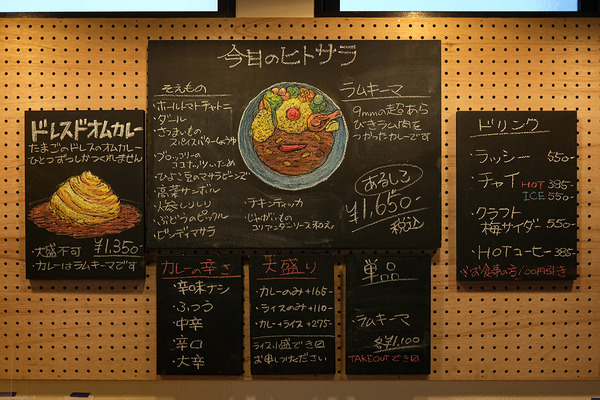 今日のヒトサラ
そえもの
・ホールトマトチャトニ
・ダール
・さつまいもの
スパイスバターしょうゆ
・ブロッコリーの
ココナッツいため
・ひよこ豆のマサラビーンズ
・高菜サンボル
・ぶどうのピックル
・ビンディマサラ
・チキンティッカ
・じゃがいもの
コリアンダーソース和え
ラムキーマ
9mmの超あら
びきラム肉を
つかったカレーです
あるしこ
¥1,650-
税込
ドレスドオムカレー
たまごのドレスのオムカレー
ひとつずつしかつくれません
・大盛不可 ¥1,350-
・カレーはラムキーマです
ドリンク
・ラッシー 550-
・チャイ HOT 385-
ICE 550-
・クラフト
梅サイダー 550-
・HOTコーヒー 385-
※お食事の方100円引き
カレーの辛さ
・辛味ナシ
・ふつう
・中辛
・辛口
・大辛
大盛り
・カレーのみ+165-
・ライスのみ+110-
・カレー+ライス+275-
ライス小盛でき〼
お申しつけください
単品
・ラムキーマ
¥1,100
TAKEOUTでき〼